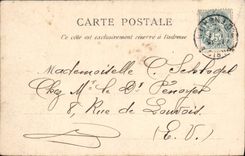 CARTE POSTALE
Ce côté est exclusivement réservé à l'adresse
Mademoiselle C.
Chez Mr le Dr Pénoyer
8, Rue de Louvois.
(E. V.)